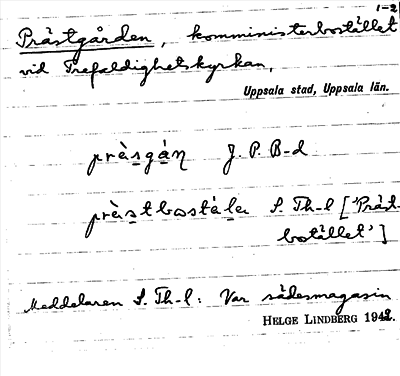 1-2
Prästgården, komministerbostället
vid Trefaldighetskyrkan,
Uppsala stad, Uppsala län.
prä̀sgán J. P. B-d
prä̀stbostäĺe S. Th-l ['Präst-
bostället']
Meddelaren S. Th-l: Var sädesmagasin
HELGE LINDBERG 1942.